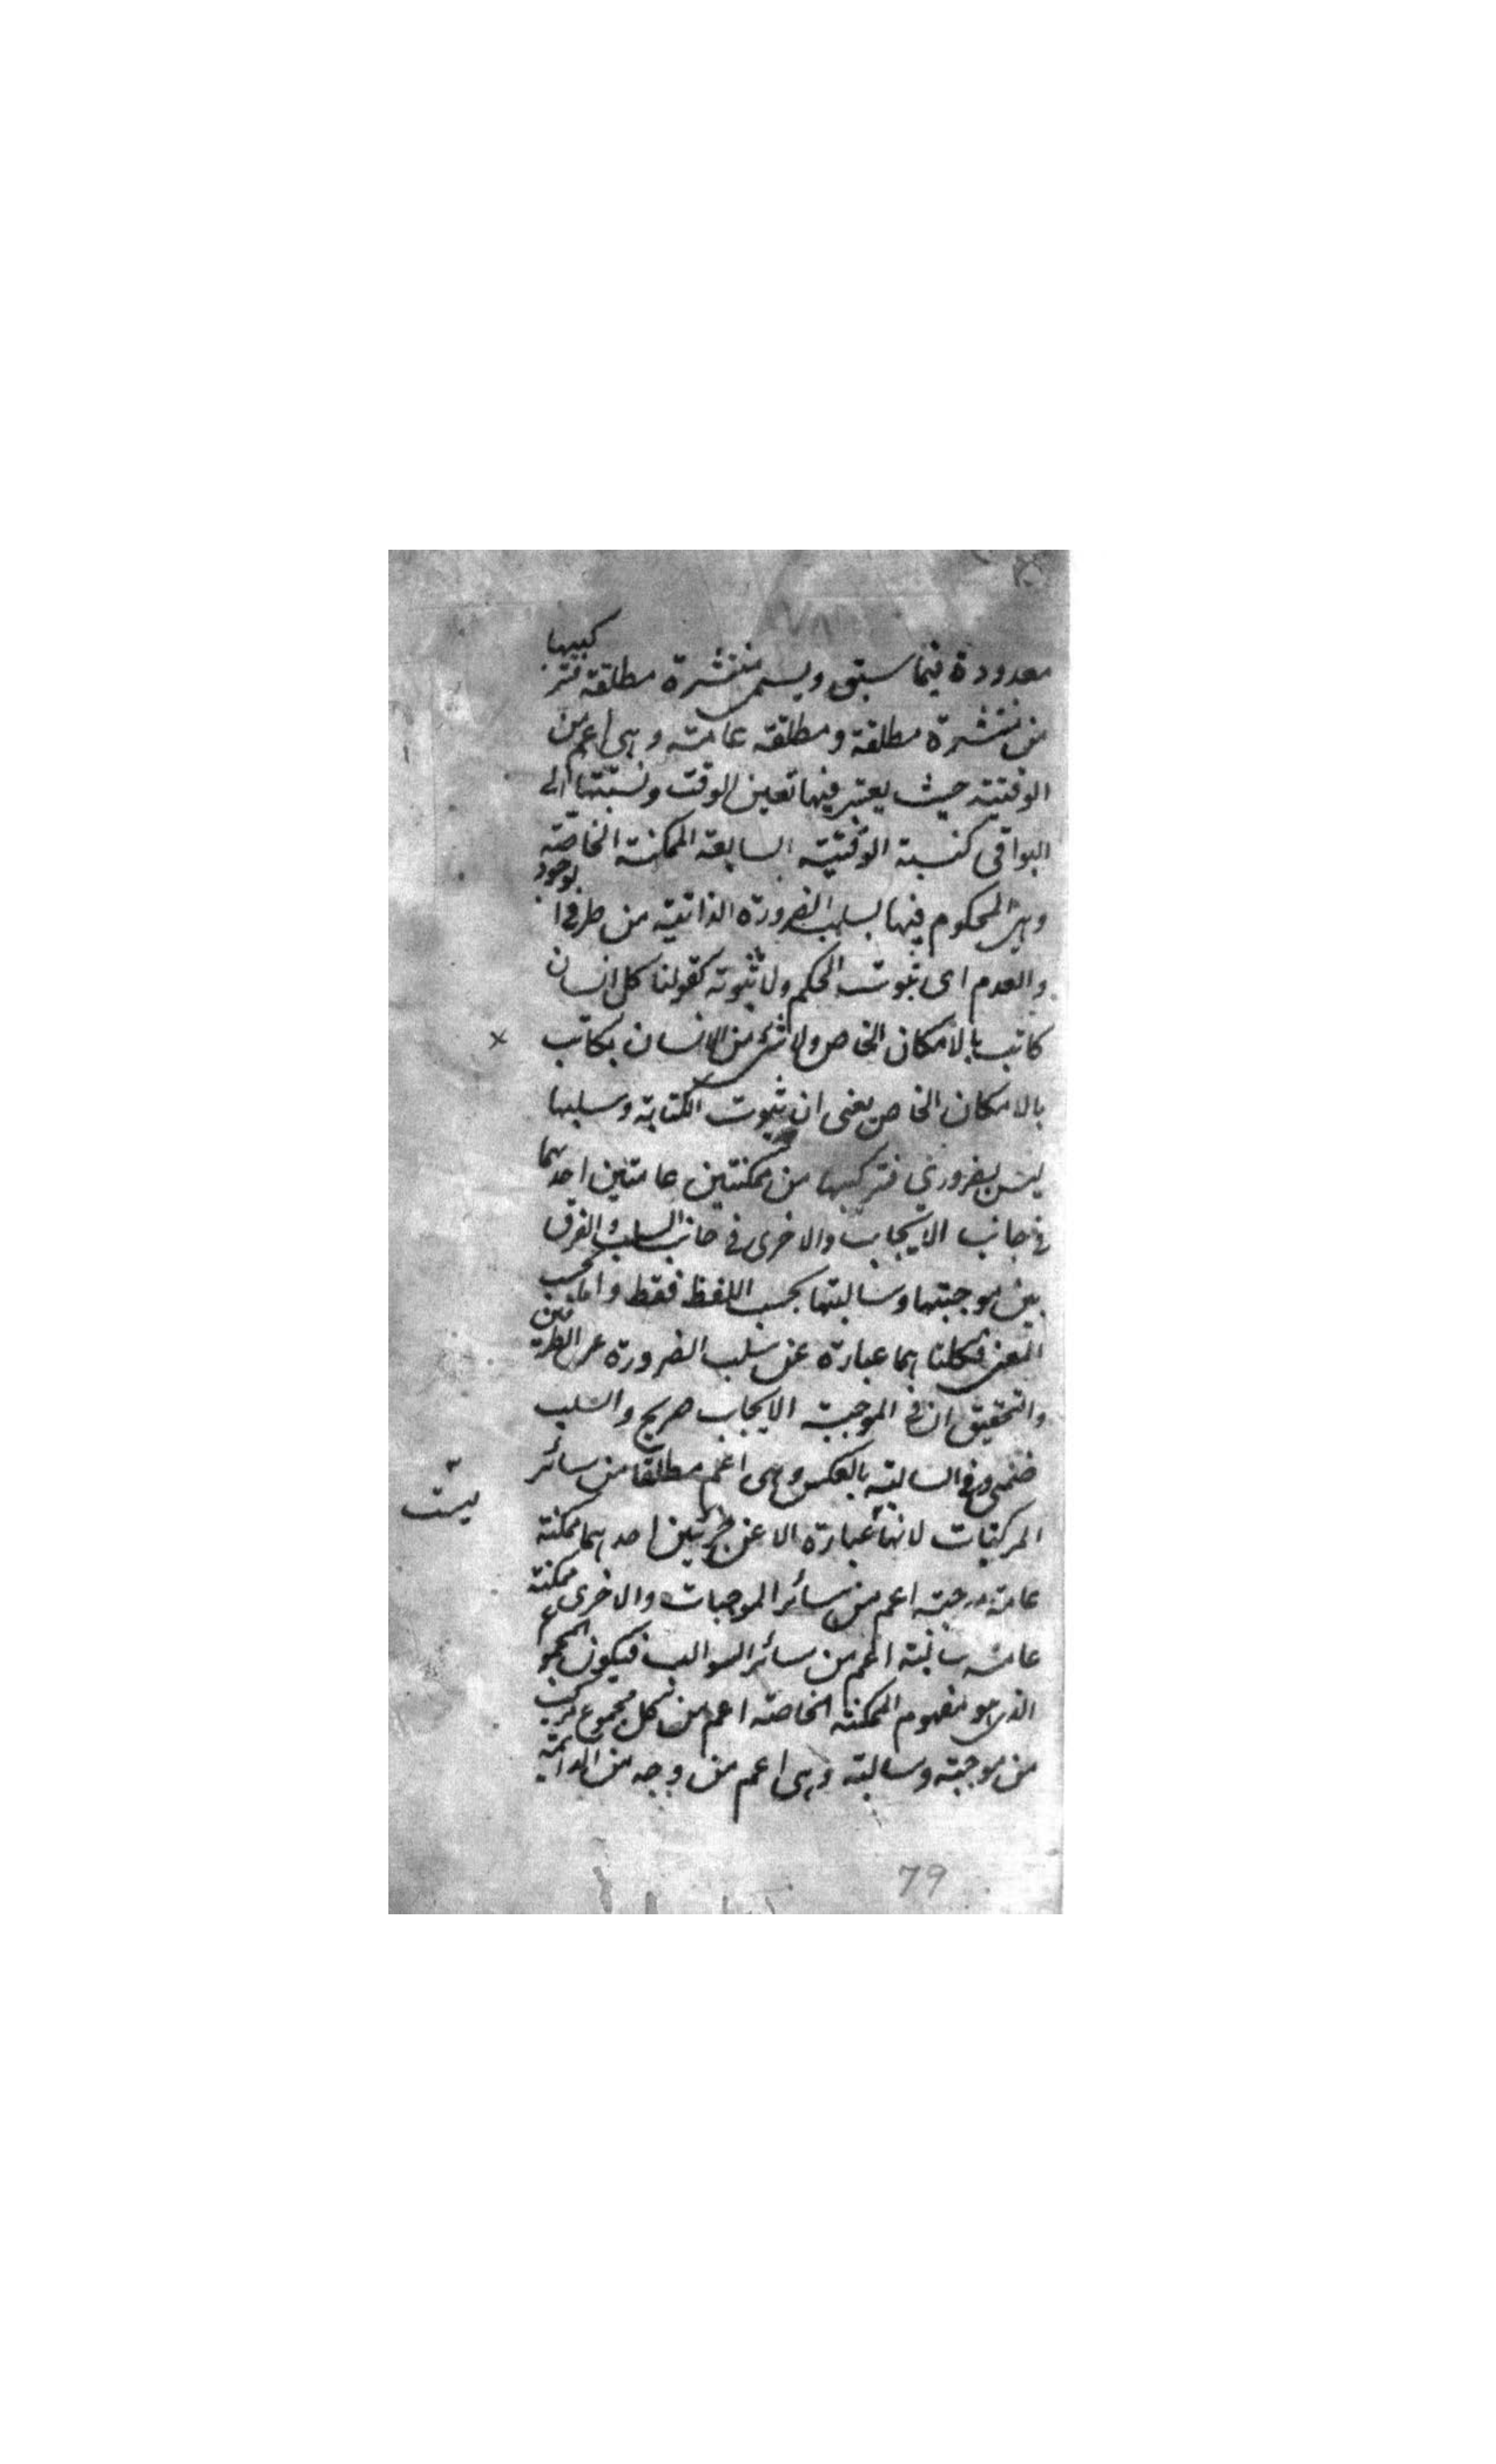 معدودة فيما سبق ويسمى منتشرة مطلقة فتركيبها
من منتشرة مطلقة ومطلقه عامته وهى اعم من
الوقتيته حيث يعتبر فيها تعين الوقت ونسبتها الى
البواقى كنسبة الوقتيته السابعة الممكنة الخاصّته
وهى المحكوم فيها بسلب الضرورة الذاتيته من طرفى الوجود
والعدم اى ثبوت الحكم ولا ثبوته كقولنا كل انسان
كاتب بالامكان الخاص ولا شئ من الانسان بكاتب
بالامكان الخاص يعنى ان ثبوت الكتابة وسلبها
ليس بضرورى فتركيبها من ممكنتين عامتين احدهما
فى جانب الايجاب والاخرى فى جانب السلب والفرق
بين موجبتها وسالبتها بحسب اللفظ فقط واما بحسب
المعنى فكلتا هما عبارة عن سلب الضرورة عن الطرفين
والتحقيق ان فى الموجبته الايجاب صريح والسلب
ضمنى وفى السالبته بالعكس وهى اعم مطلقا من سائر
المركبات لانها عبارة الا عن جزئين احدهما ممكنته
عامته موجبته اعم من سائر الموجبات والاخرى ممكنته
عامته سالبته اعم من سائر السوالب فيكون المجموع
الذى هو مفهوم الممكنته الخاصته اعم من كل مجموع مركب
من موجبته وسالبته وهى اعم من وجه من الدائمته
ليست
79